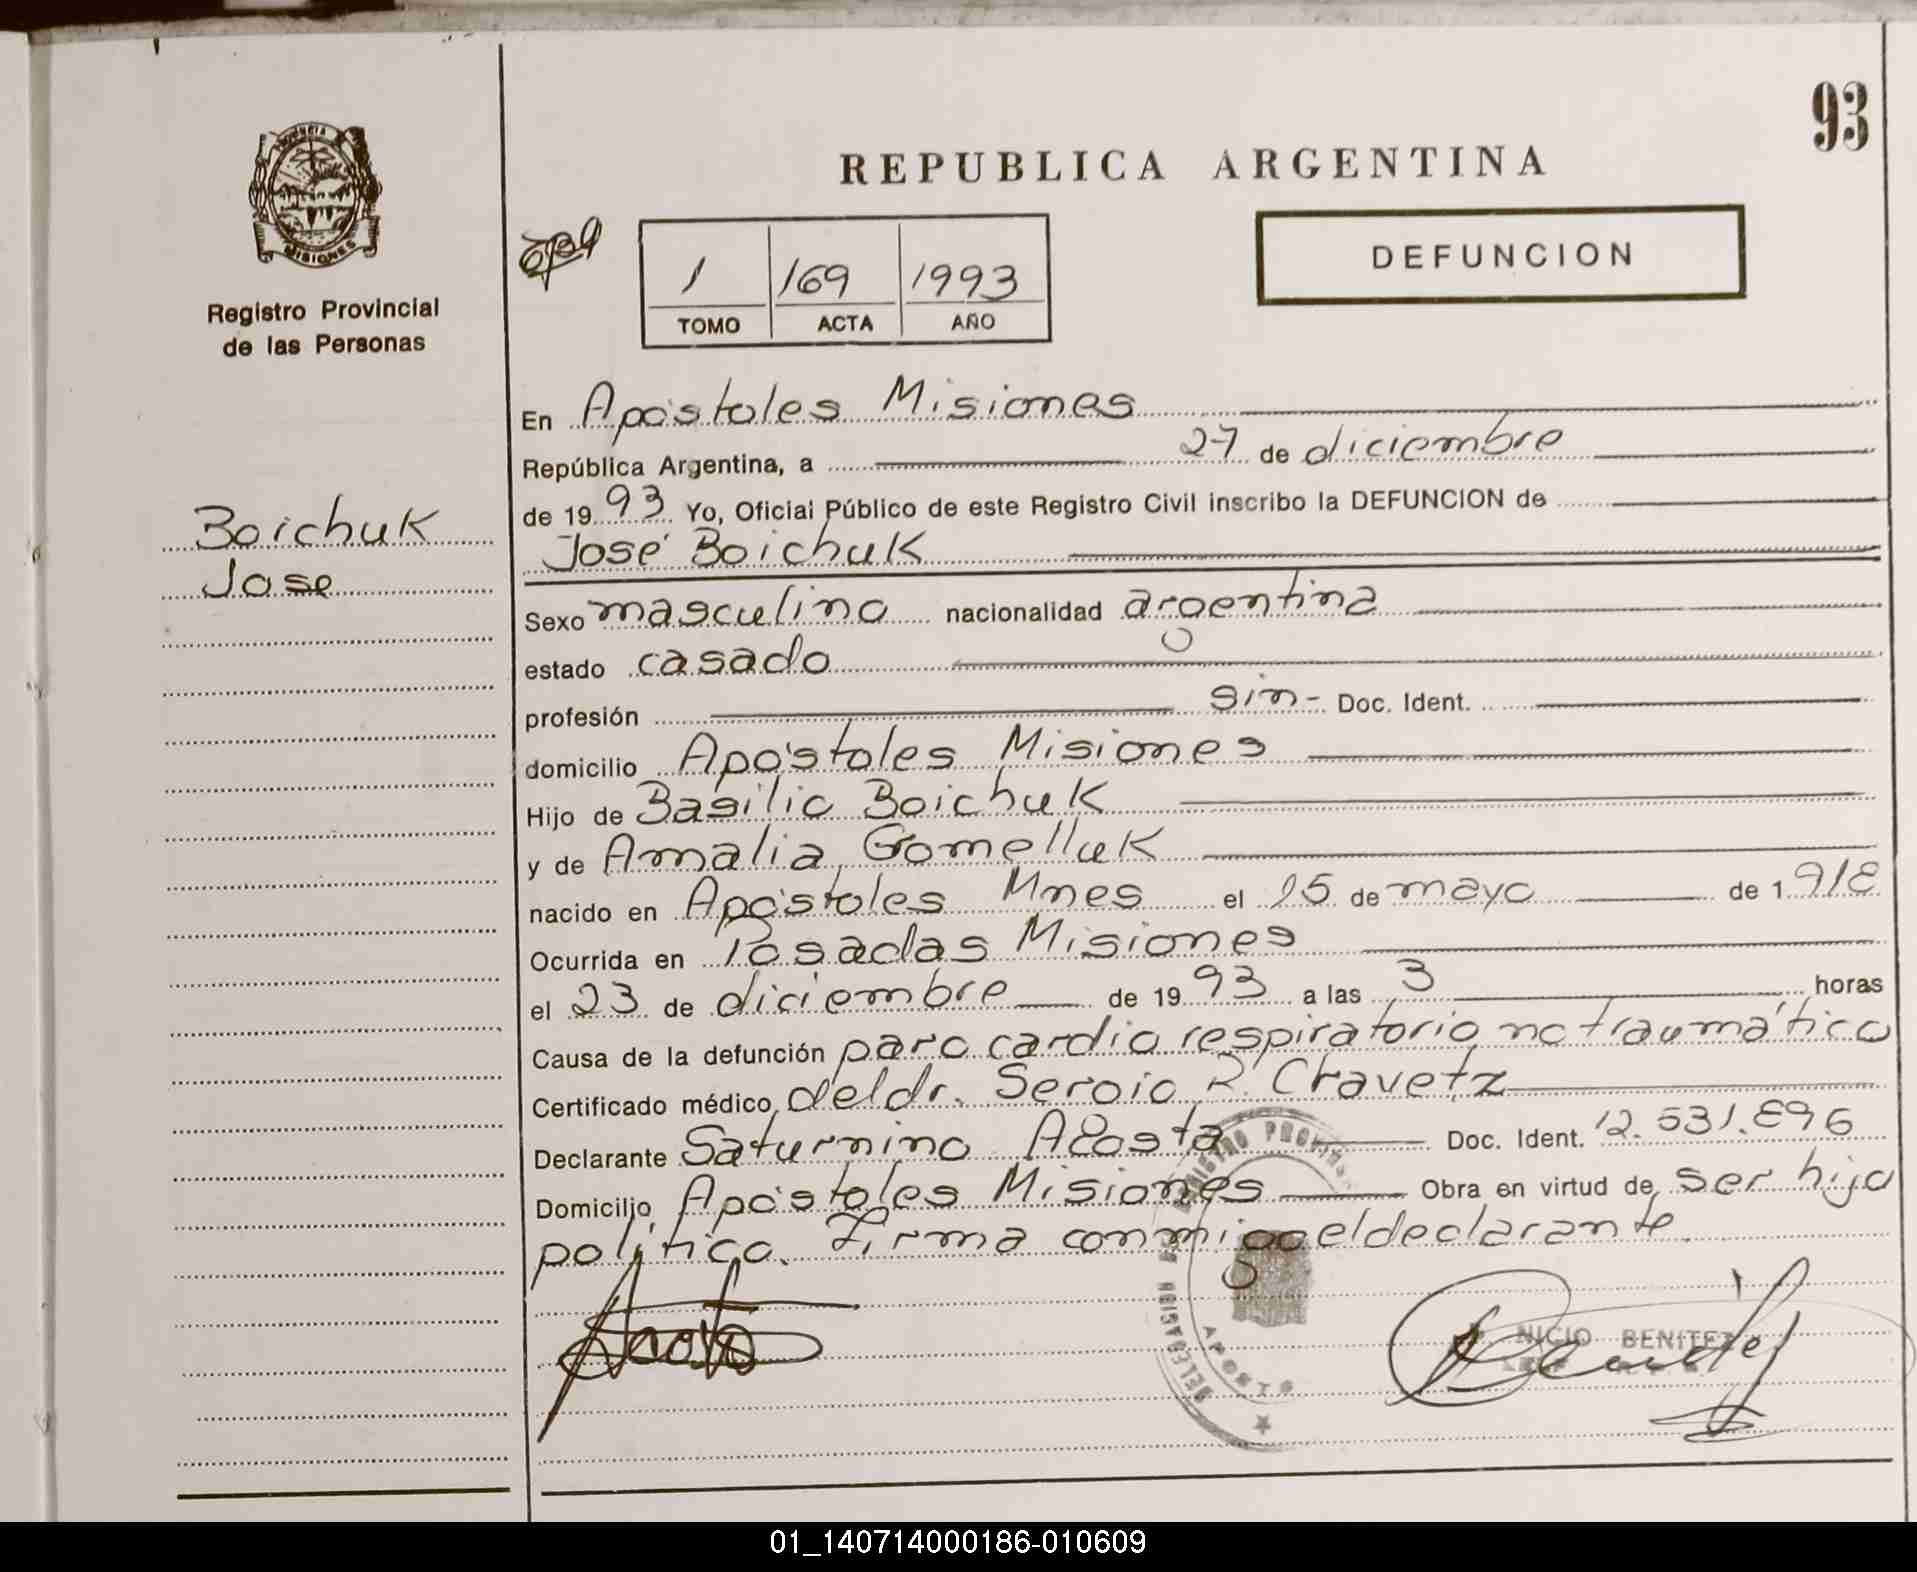 93
REPUBLICA ARGENTINA
DEFUNCION
PROVINCIA
MISIONES
Registro Provincial
de las Personas
1 169 1993
TOMO ACTA AÑO
Boichuk
Jose
En Apóstoles Misiones
República Argentina, a 27 de diciembre
de 1993 Yo, Oficial Público de este Registro Civil inscribo la DEFUNCION de
José Boichuk
Sexo masculino nacionalidad argentina
estado casado
profesión sin- Doc. Ident.
domicilio Apóstoles Misiones
Hijo de Basilio Boichuk
y de Amalia Gomelluk
nacido en Apóstoles Mnes el 15 de mayo de 1918
Ocurrida en Posadas Misiones
el 23 de diciembre de 1993 a las 3 horas
Causa de la defunción paro cardio respiratorio no traumático
Certificado médico del dr. Sergio R. Chavetz
Declarante Saturnino Acosta Doc. Ident. 12.531.896
Domicilio Apóstoles Misiones Obra en virtud de ser hijo
político. Firma conmigo el declarante.
Acosta
NICIO BENITEZ
01_140714000186-010609